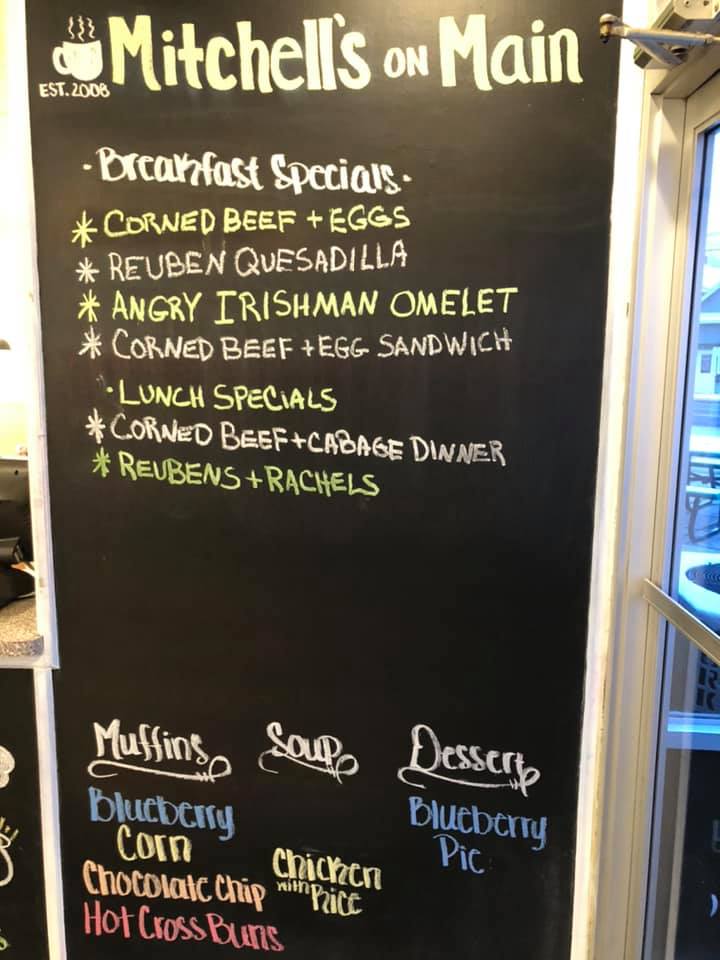 Mitchell's ON Main
EST. 2008
·Breakfast Specials·
* CORNED BEEF + EGGS
* REUBEN QUESADILLA
* ANGRY IRISHMAN OMELET
* CORNED BEEF + EGG SANDWICH
· LUNCH SPECIALS
* CORNED BEEF + CABAGE DINNER
* REUBENS + RACHELS
Muffins
Blueberry
Corn
Chocolate Chip
Hot Cross Buns
Soup
Chicken
with Rice
Dessert
Blueberry
Pie